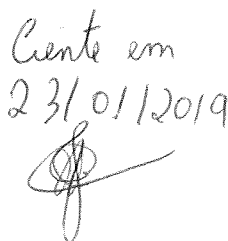 Ciente em
23/01/2019